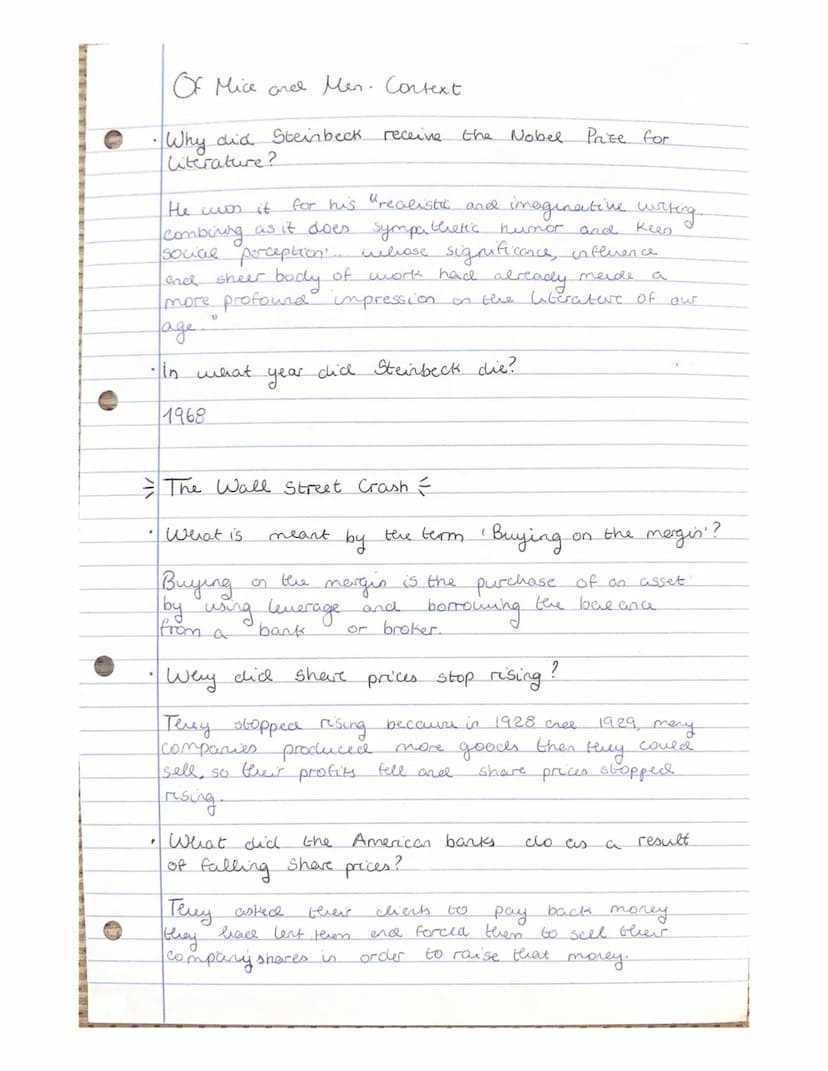 Of Mice and Men - Context
· Why did Steinbeck receive the Nobel Prize for
Literature?
He won it for his "realistic and imaginative writing,
combining as it does sympathetic humor and keen
social perception'.. whose significance, influence
and sheer body of work had already made a
more profound impression on the literature of our
age."
· In what year did Steinbeck die?
1968
The Wall Street Crash
· What is meant by the term 'Buying on the margin'?
Buying on the margin is the purchase of an asset
by using leverage and borrowing the balance
from a bank or broker.
· Why did share prices stop rising?
They stopped rising because in 1928 and 1929, many
companies produced more goods then they could
sell, so their profits fell and share prices stopped
rising.
· What did the American banks do as a result
of falling share prices?
They asked their clients to pay back money
they have lent them and forced them to sell their
company shares in order to raise that money.